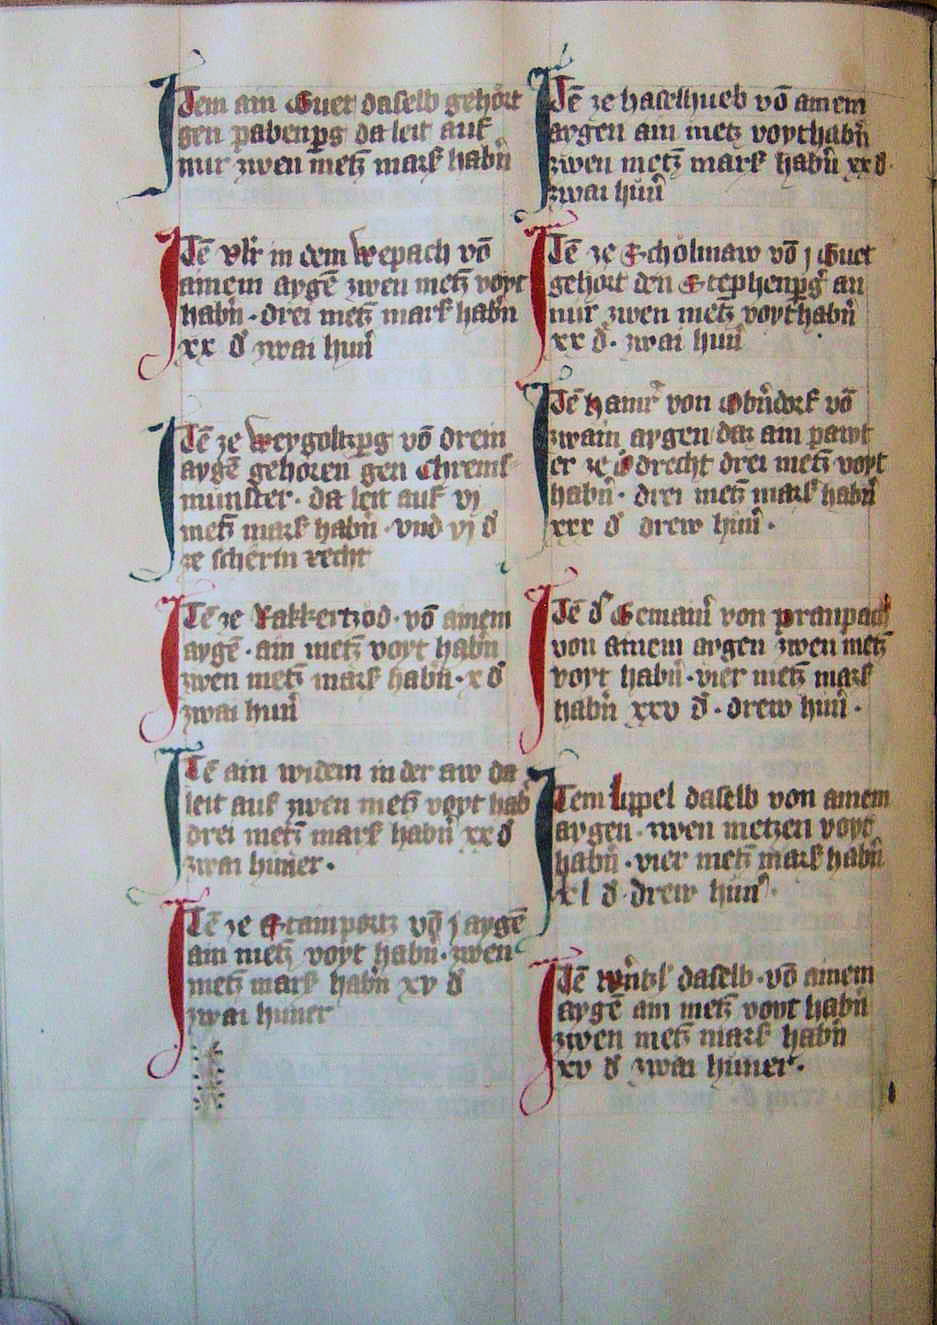 Item ain Guet daselb gehört
gen pabenp̄g da leit auf
nur zwen metz̄ mark habn̄
Itē Vlr̄ in dem Wepach vō
ainem aygē zwen metz̄ voyt
habn̄ · drei metz̄ mark habn̄
xx đ zwai hun̄
Itē ze Weygoltzp̄g vō drein
aygē gehoren gen Chrems
munster · da leit auf vj
metz̄ mark habn̄ · vnd vj đ
ze scherin recht
Itē ze Rakkertzod · vō ainem
aygē · ain metz̄ voyt habn̄
zwen metz̄ mark habn̄ · x đ
zwai hun̄
Itē ain widem in der aw da
leit auf zwen metz̄ voyt hab
drei metz̄ mark habn̄ xx đ
zwai huner ·
Itē ze Stamportz vō j aygē
ain metz̄ voyt habn̄ · zwen
metz̄ mark habn̄ xv đ
zwai huner
Itē ze haselhueb vō ainem
aygen ain metz voythabn̄
zwen metz̄ mark habn̄ xx đ
zwai hun̄
Itē ze Scholmaw vō j Guet
gehort den Stephenp̄ḡ an
nur zwen metz̄ voythabn̄
xx đ · zwai hun̄
Itē von Obn̄dorf vō
zwain aygen daz ain pawt
er ze drei metz̄ voyt
habn̄ · drei metz̄ mark habn̄
xxx đ drew hun̄ ·
Itē d' Gemain̄ von pranpach
von ainem aygen zwen metz̄
voyt habn̄ · vier metz̄ mark
habn̄ xxv đ · drew hun̄ ·
Item lippel daselb von ainem
aygen · zwen metzen voyt
habn̄ · vier metz̄ mark habn̄
xl đ drew hun̄ ·
Itē daselb · vō ainem
aygē ain metz̄ voyt habn̄
zwen metz̄ mark habn̄
xv đ zwai huner ·